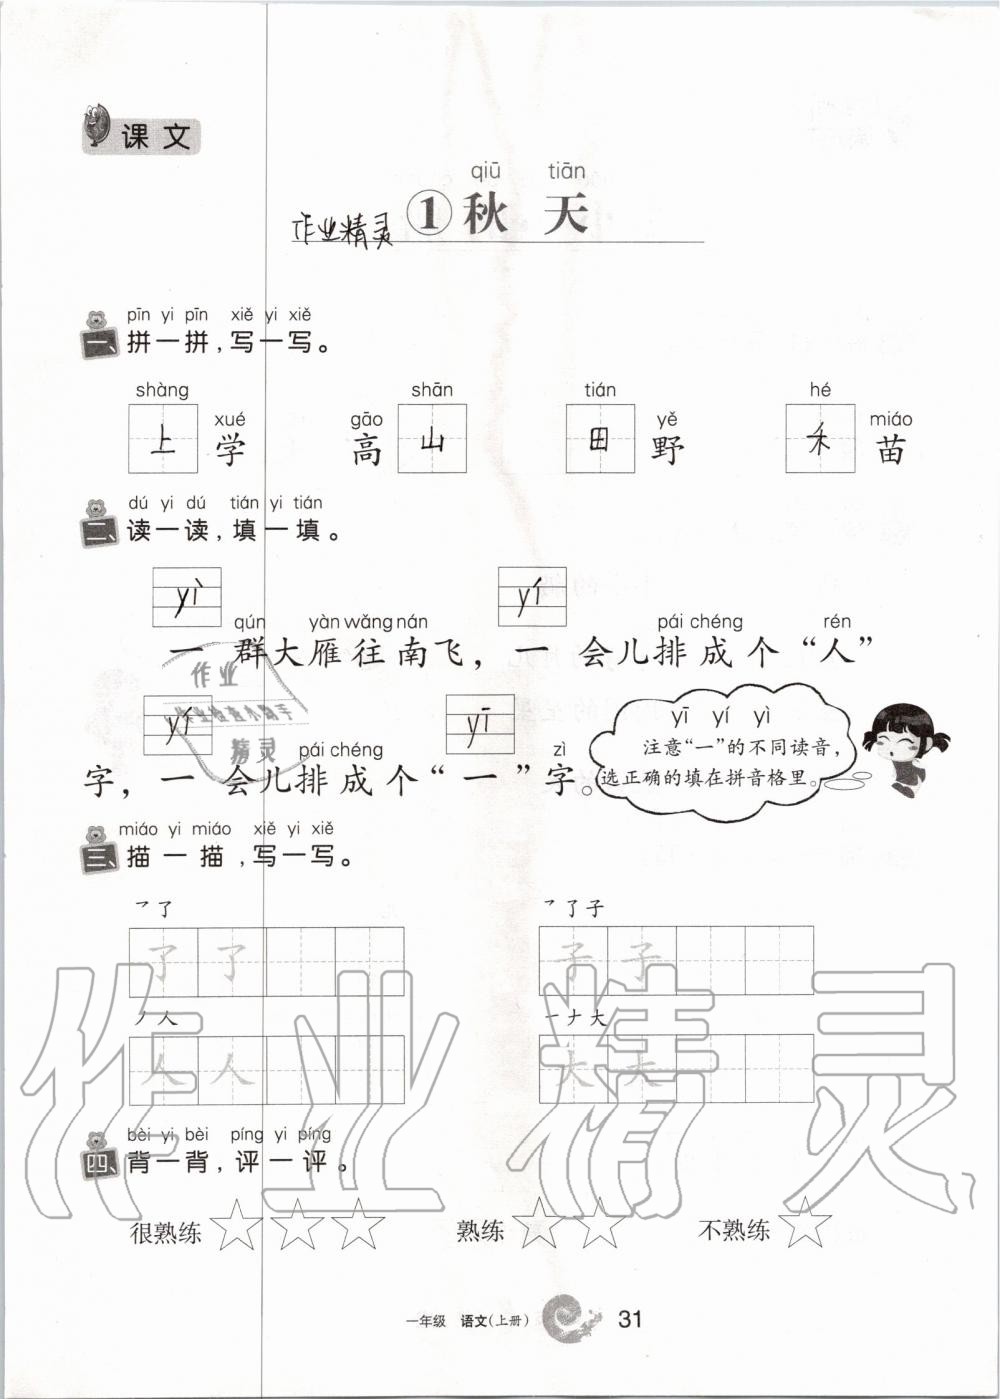 课文
qiū tiān
作业精灵 ①秋 天
pīn yi pīn xiě yi xiě
一、拼一拼，写一写。
shàng shān tián hé
xué gāo yě miáo
上 学 高 山 田 野 禾 苗
dú yi dú tián yi tián
二、读一读，填一填。
yì yí
qún yàn wǎng nán pái chéng rén
一 群大雁往南飞，一 会儿排成个“人”
yí yī
pái chéng zì
字，一 会儿排成个“一”字。
yī yí yì
注意“一”的不同读音，
选正确的填在拼音格里。
作业
作业检查小助手
精灵
miáo yi miáo xiě yi xiě
三、描一描，写一写。
乛了 乛了子
了 了 子 子
丿人 一ナ大
人 人 大 大
bèi yi bèi píng yi píng
四、背一背，评一评。
很熟练 熟练 不熟练
一年级 语文（上册） 31
作业精灵